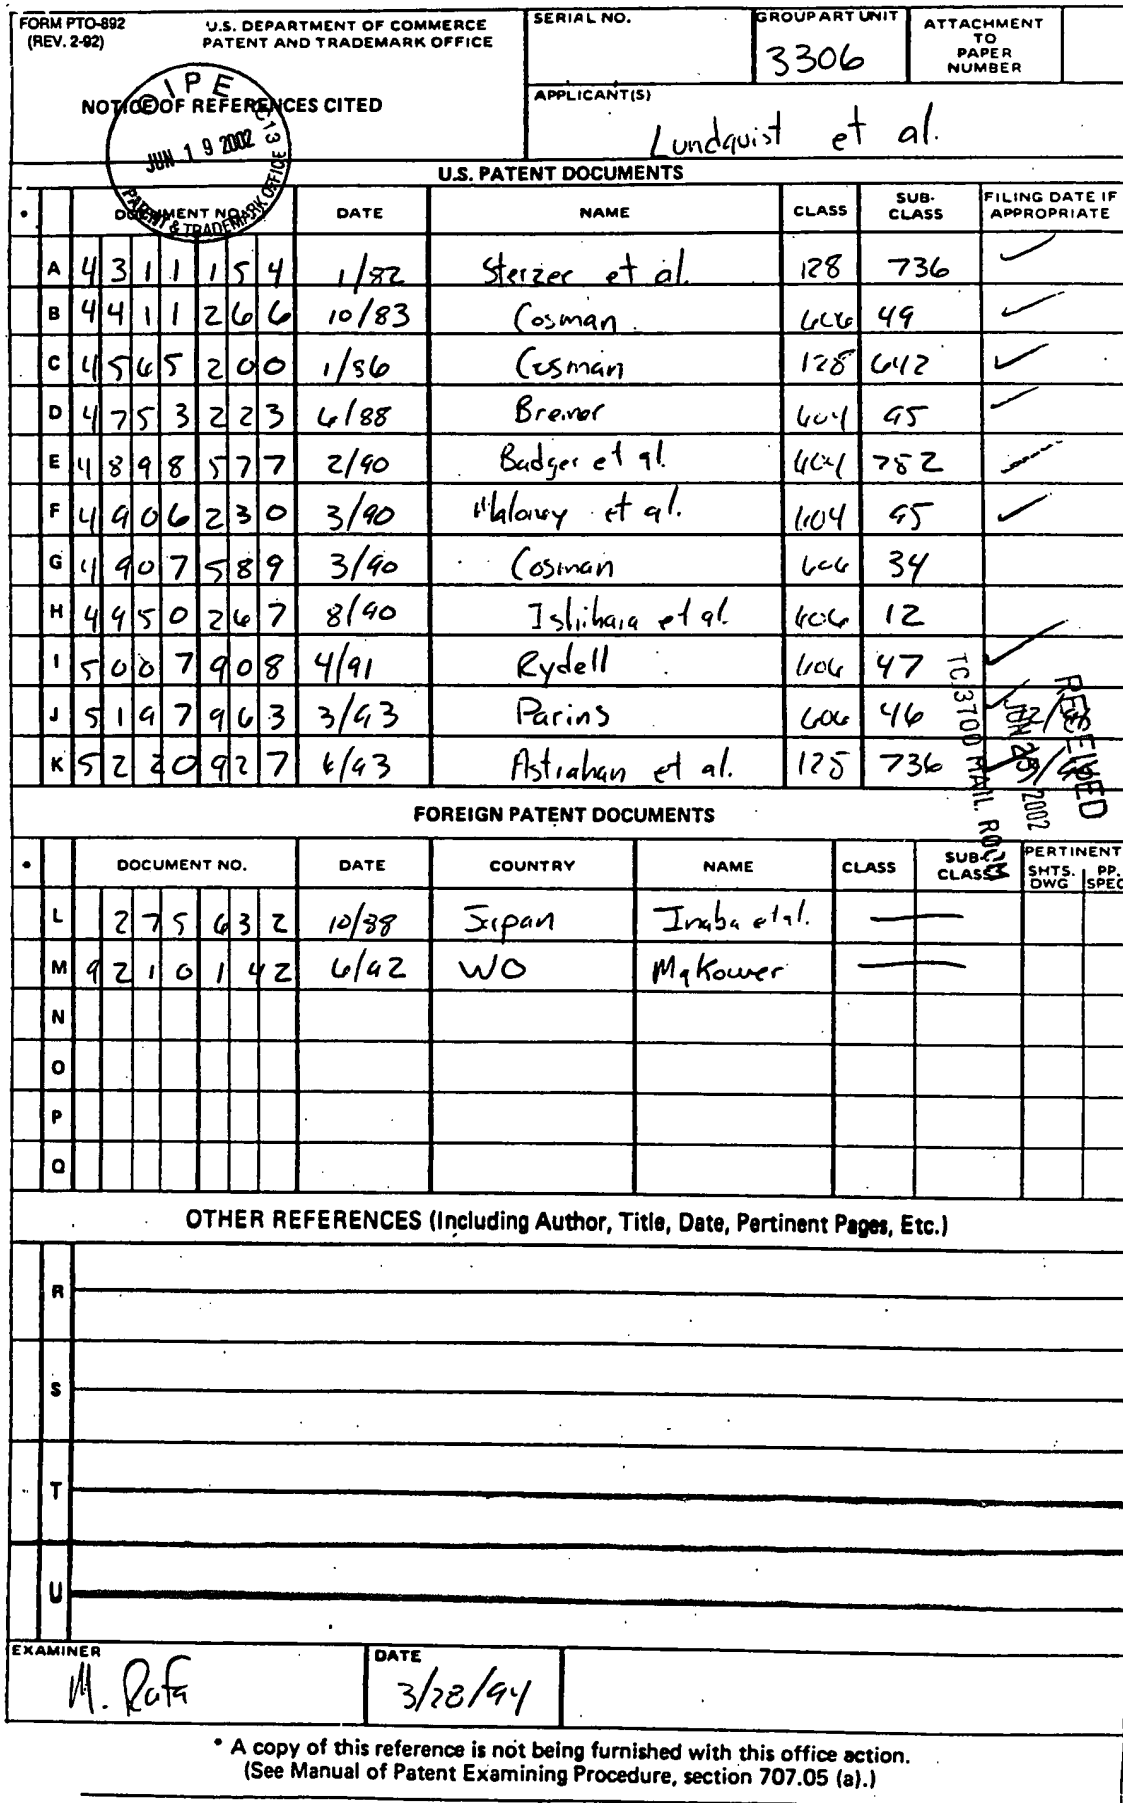 FORM PTO-892 U.S. DEPARTMENT OF COMMERCE SERIAL NO. GROUP ART UNIT ATTACHMENT TO PAPER NUMBER
(REV. 2-92) PATENT AND TRADEMARK OFFICE 3306
NOTICE OF REFERENCES CITED
OIPE JC13
JUN 19 2002
PATENT & TRADEMARK OFFICE
APPLICANT(S)
Lundquist et al.
U.S. PATENT DOCUMENTS
* DOCUMENT NO. DATE NAME CLASS SUB-CLASS FILING DATE IF APPROPRIATE
A 4311154 1/82 Sterzer et al. 128 736
B 4411266 10/83 Cosman 606 49
C 4565200 1/86 Cosman 128 642
D 4753223 6/88 Bremer 604 95
E 4898577 2/90 Badger et al. 604 282
F 4906230 3/90 Maloney et al. 604 95
G 4907589 3/90 Cosman 606 34
H 4950267 8/90 Ishihara et al. 606 12
I 5007908 4/91 Rydell 606 47
J 5197963 3/93 Parins 606 46
K 5220927 6/93 Astrahan et al. 128 736
RECEIVED
2002
TC 3700 MAIL ROOM
FOREIGN PATENT DOCUMENTS
* DOCUMENT NO. DATE COUNTRY NAME CLASS SUB-CLASS PERTINENT SHTS. DWG PP. SPEC
L 275632 10/88 Japan Inaba et al.
M 9210142 6/92 WO Makower
N
O
P
Q
OTHER REFERENCES (Including Author, Title, Date, Pertinent Pages, Etc.)
R
S
T
U
EXAMINER DATE
M. 3/28/94
* A copy of this reference is not being furnished with this office action.
(See Manual of Patent Examining Procedure, section 707.05 (a).)